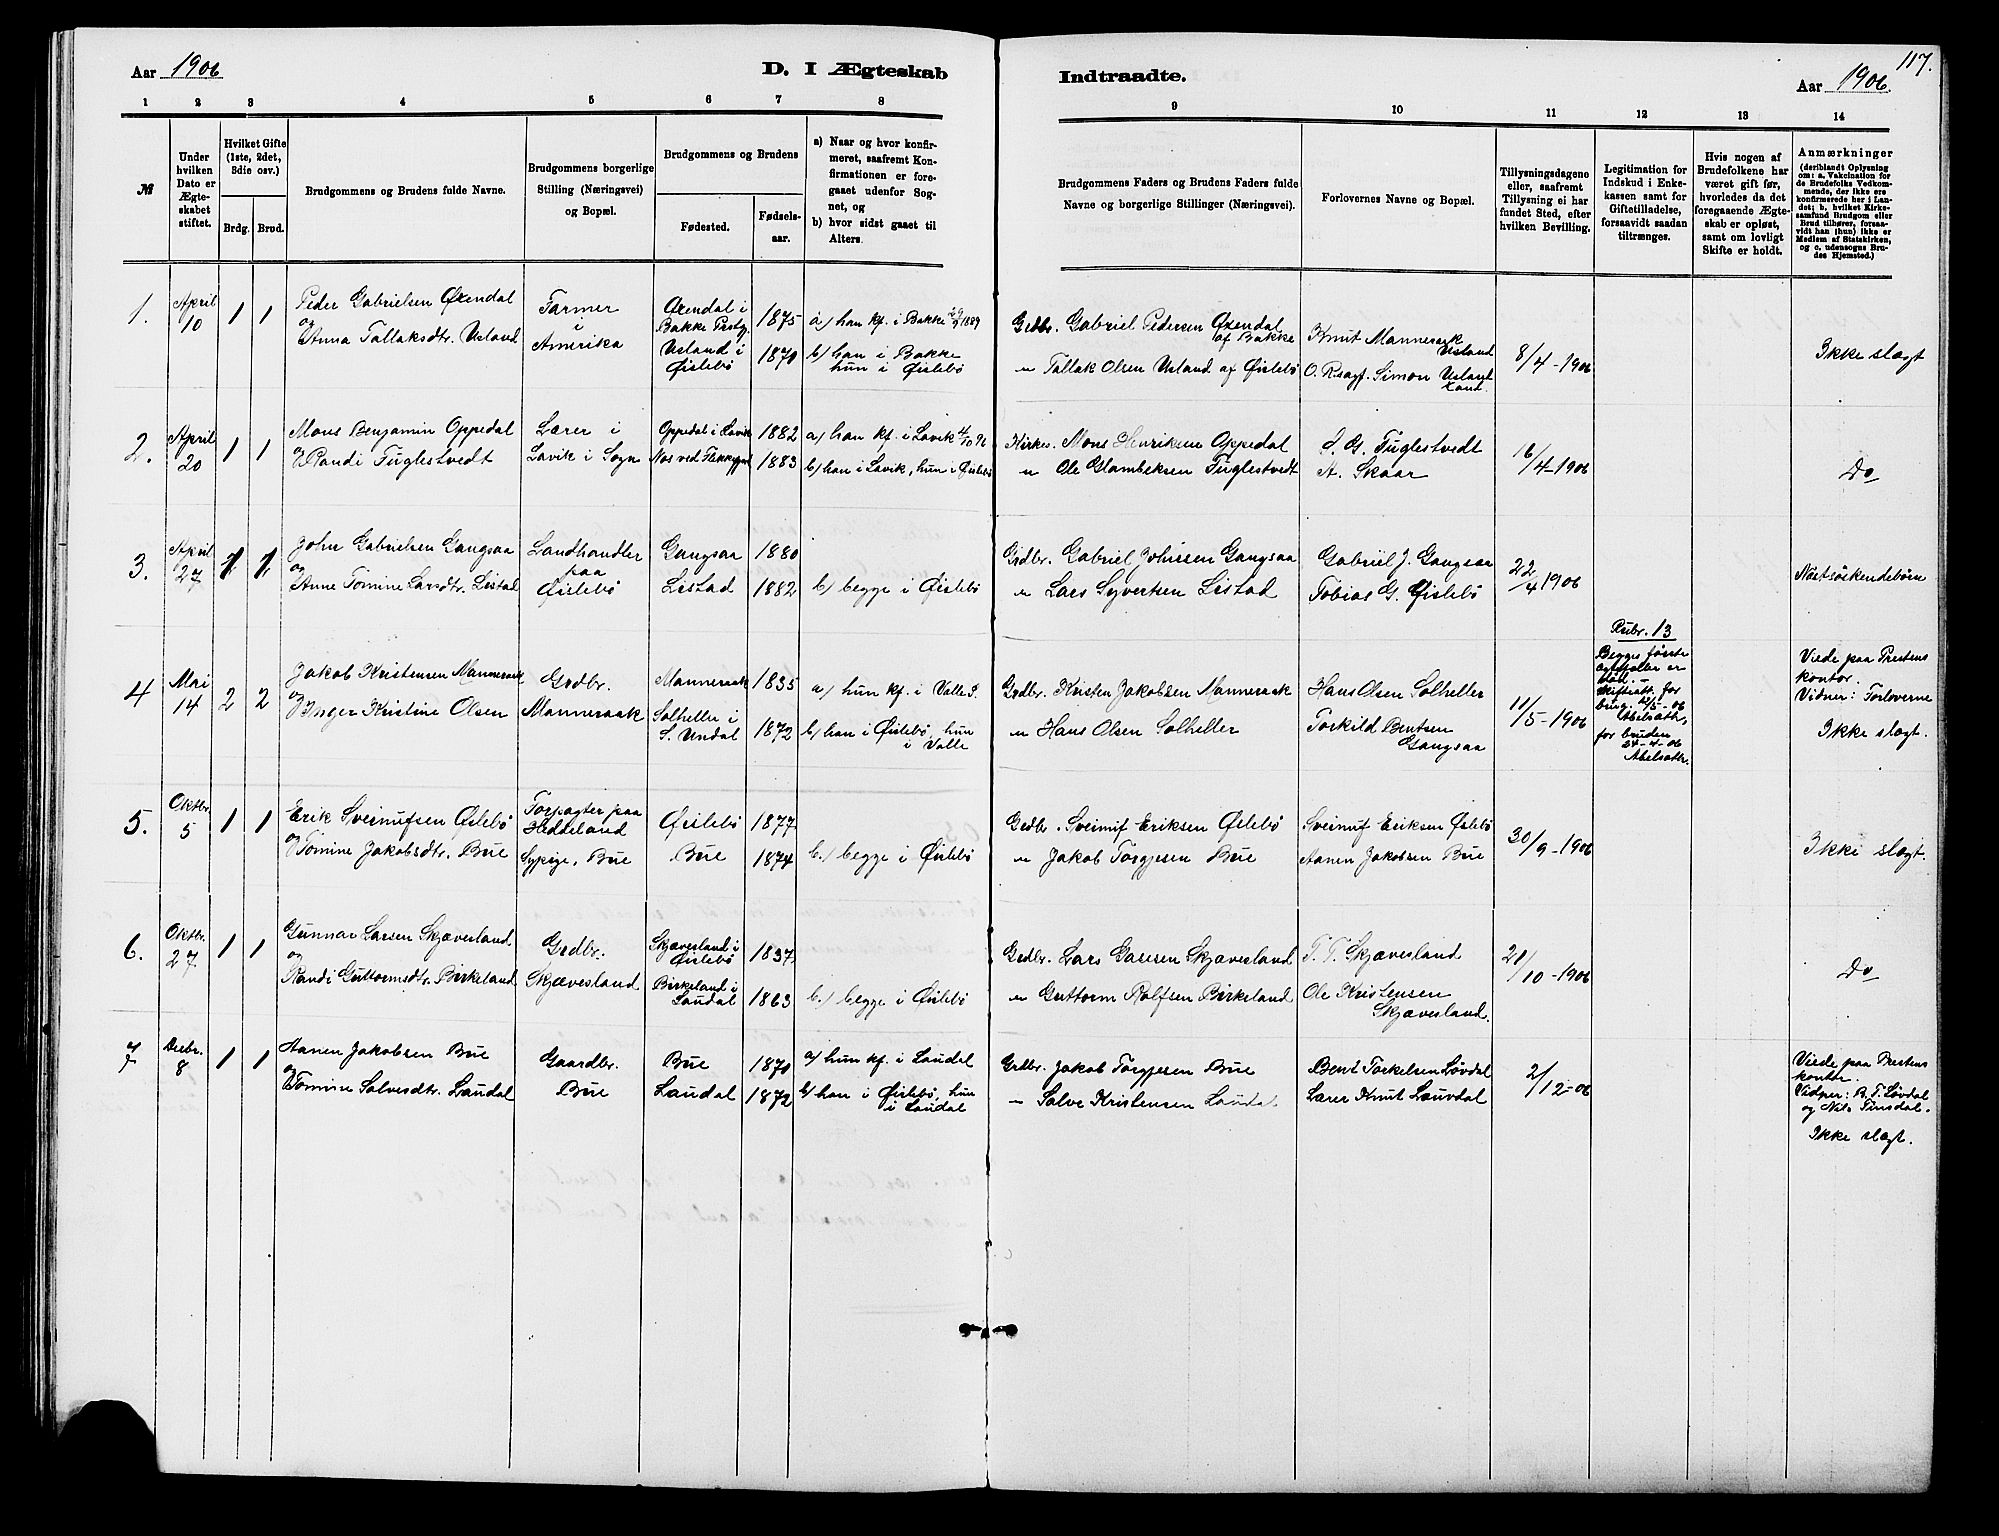 Aar 1906
D. I Ægteskab
Indtraadte.
Aar 1906.
117.
1 2 3 4 5 6 7 8 9 10 11 12 13 14
№
Under hvilken Dato er Ægteskabet stiftet.
Hvilket Gifte (1ste, 2det, 3die osv.)
Brdg. Brud.
Brudgommens og Brudens fulde Navne.
Brudgommens borgerlige Stilling (Næringsvei) og Bopæl.
Brudgommens og Brudens
Fødested.
Fødselsaar.
a) Naar og hvor konfirmeret, saafremt Konfirmationen er foregaaet udenfor Sognet, og
b) hvor sidst gaaet til Alters.
Brudgommens Faders og Brudens Faders fulde Navne og borgerlige Stillinger (Næringsvei).
Forlovernes Navne og Bopæl.
Tillysningsdagene eller, saafremt Tillysning ei har fundet Sted, efter hvilken Bevilling.
Legitimation for Indskud i Enkekassen samt for Giftetilladelse, forsaavidt saadan tiltrænges.
Hvis nogen af Brudefolkene har været gift før, hvorledes da det foregaaende Ægteskab er opløst, samt om lovligt Skifte er holdt.
Anmærkninger (deriblandt Oplysning om: a. Vakcination for de Brudefolks Vedkommende, der ikke ere konfirmerede her i Landet; b. hvilket Kirkesamfund Brudgom eller Brud tilhører, forsaavidt han (hun) ikke er Medlem af Statskirken, og c. udensogns Brudes Hjemsted.)
1. April 10 1 1
Peder Gabrielsen Øxendal
og Anna Tallaksdtr. Usland
Farmer i Amerika
Øxendal i Bakke Prstg. 1875
Usland i Øislebö 1870
a) han kf. i Bakke 1889
b) han i Bakke hun i Øislebö
Grdbr. Gabriel Pedersen Øxendal af Bakke
" Tallak Olsen Usland af Øislebö
Knut Manneraak Usland
Simon Usland
8/4-1906
Ikke slægt
2. April 20 1 1
Mons Benjamin Oppedal
og Randi Fuglestvedt
Lærer i Lavik i Sogn
Oppedal i Lavik 1882
Næs ved Flekkefjord 1883
a) han kf. i Lavik 4/10 96
b) han i Lavik, hun i Øislebö
Kirkes. Mons Henriksen Oppedal
" Ole Glambeksen Fuglestvedt
S. G. Fuglestvedt
A. Skaar
16/4-1906
Do
3. April 27 1 1
John Gabrielsen Gangsaa
og Anne Tomine Larsdtr. Listad
Landhandler paa Øislebö
Gangsaa 1880
Listad 1882
b) begge i Øislebö
Grdbr. Gabriel Johnsen Gangsaa
" Lars Syvertsen Listad
Gabriel J. Gangsaa
Tobias G. Øislebö
22/4 1906
Næstsöskendebörn
4 Mai 14 2 2
Jakob Kristensen Manneraak
og Inger Kristine Olsen
Grdbr. Manneraak
Manneraak 1835
Solheller i S. Undal 1872
a) hun kf. i Valle S.
b) han i Øislebö, hun i Valle
Grdbr. Kristen Jakobsen Manneraak
" Hans Olsen Solheller
Hans Olsen Solheller
Torkild Bentsen Gangsaa
11/5-1906
Rubr. 13
Begges første
for bruden 24-4-06
Viede paa Prestens kontor.
Vidner: Forloverne
Ikke slægt.
5. Oktbr. 5 1 1
Erik Sveinufsen Øslebö
og Tomine Jakobsdtr. Bue
Forpagter paa Heddeland
Sypige, Bue
Øislebö 1877
Bue 1874
b.) begge i Øislebö
Grdbr. Sveinuf Eriksen Øslebö
" Jakob Torgjesen Bue
Sveinuf Eriksen Øslebö
Aanen Jakobsen Bue
30/9-1906
Ikke slægt.
6. Oktbr. 27 1 1
Gunnar Larsen Skjævesland
og Randi Guttormsdtr. Birkeland
Grdbr. Skjævesland
Skjævesland i Øislebö 1837
Birkeland i Laudal 1863
b.) begge i Øislebö
Grdbr. Lars Larsen Skjævesland
" Guttorm Rolfsen Birkeland
T. T. Skjævesland
Ole Kristensen Skjævesland.
21/10-1906
Do
7 Decbr. 8 1 1
Aanen Jakobsen Bue
og Tomine Salvesdtr. Laudal
Gaardbr. Bue
Bue 1870
Laudal 1872
a) hun kf. i Laudal
b) han i Øislebö, hun i Laudal
Grdbr. Jakob Torgjesen Bue
" Salve Kristensen Laudal
Bent Torkelsen Løvdal
Lærer Knut Lauvdal
2/12-06
Viede paa Prestens kontor.
Vidner: B. T. Løvdal og Nils Finsdal.
Ikke slægt.